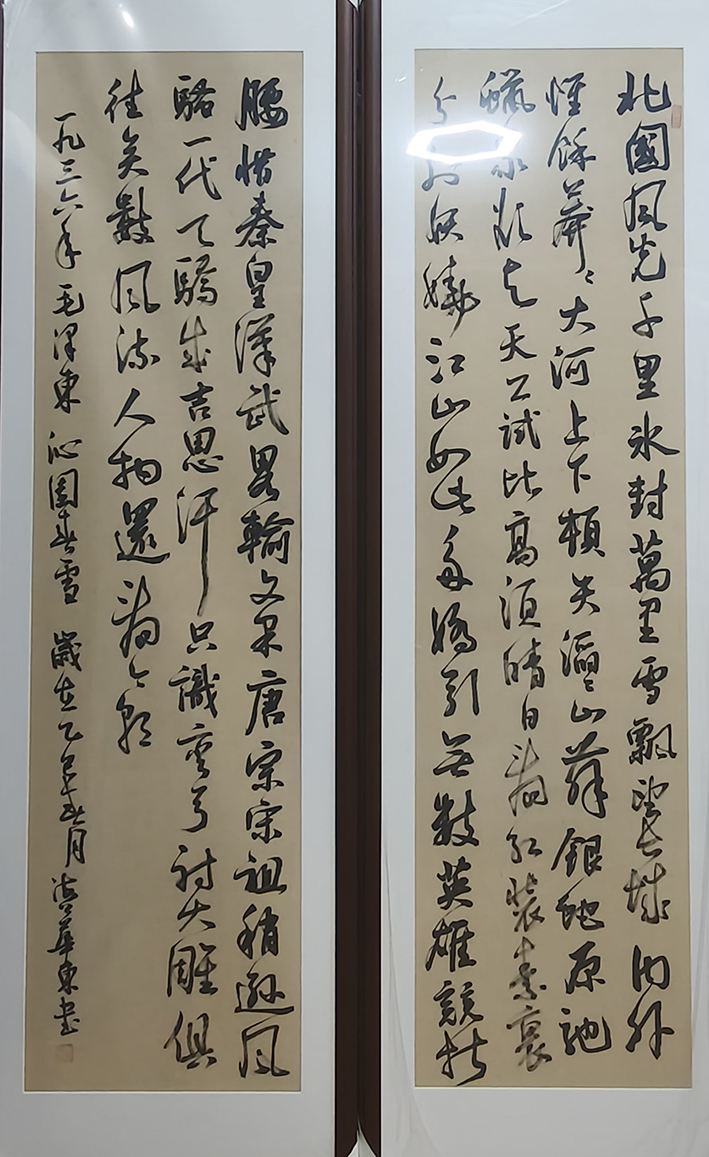 北國風光千里冰封萬里雪飄望長城內外
惟餘莽〻大河上下頓失滔〻山舞銀蛇原馳
蠟象欲与天公試比高須晴日看紅裝素裹
分外妖嬈江山如此多嬌引無數英雄競折
腰惜秦皇漢武畧輸文采唐宗宋祖稍遜風
騷一代天驕成吉思汗只識彎弓射大雕俱
往矣數風流人物還看今朝
一九三六年毛澤東沁園春雪歲在乙巳春月華東書